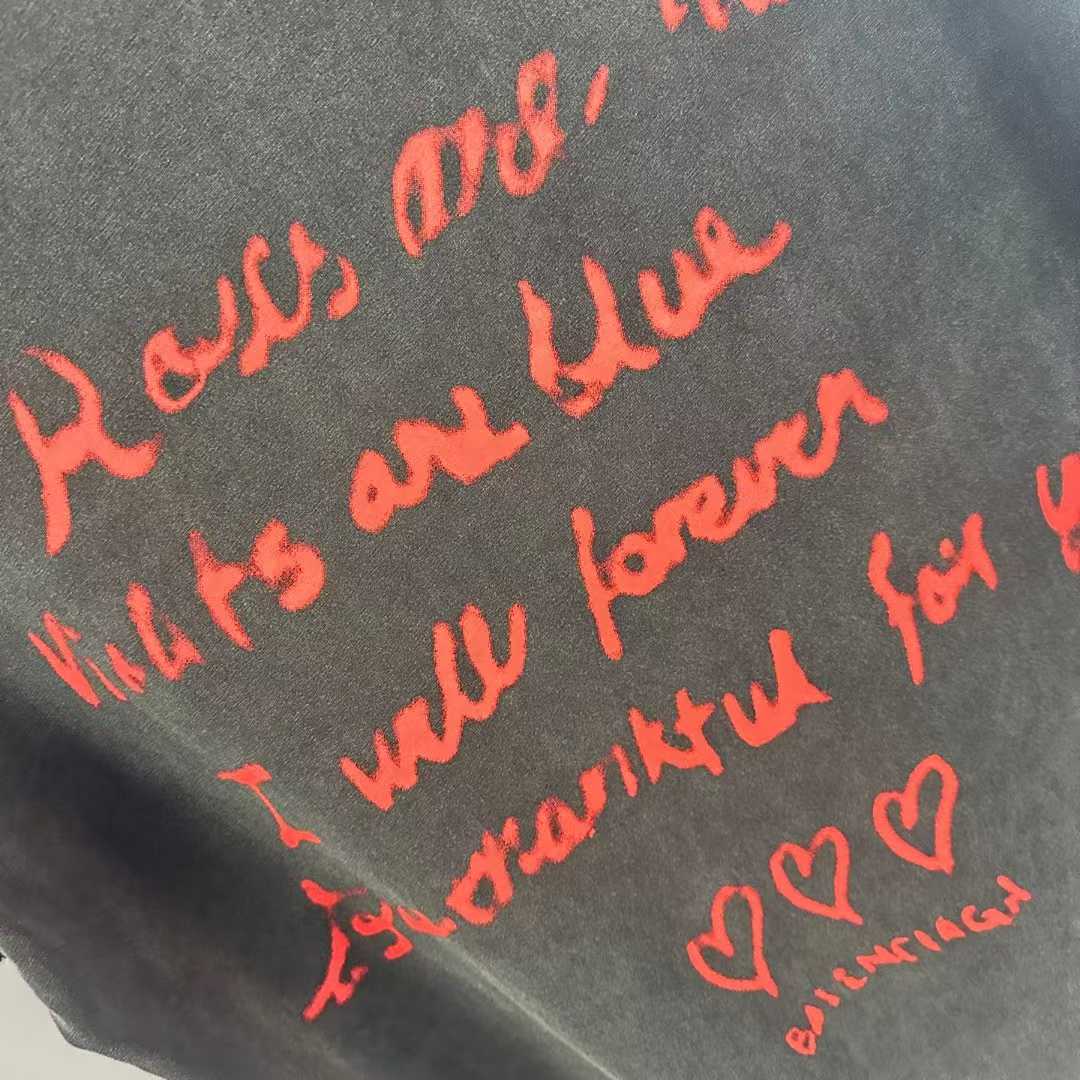 Roses are,
Violets are blue
I will forever
thankful for
♡♡♡
BALENCIAGA